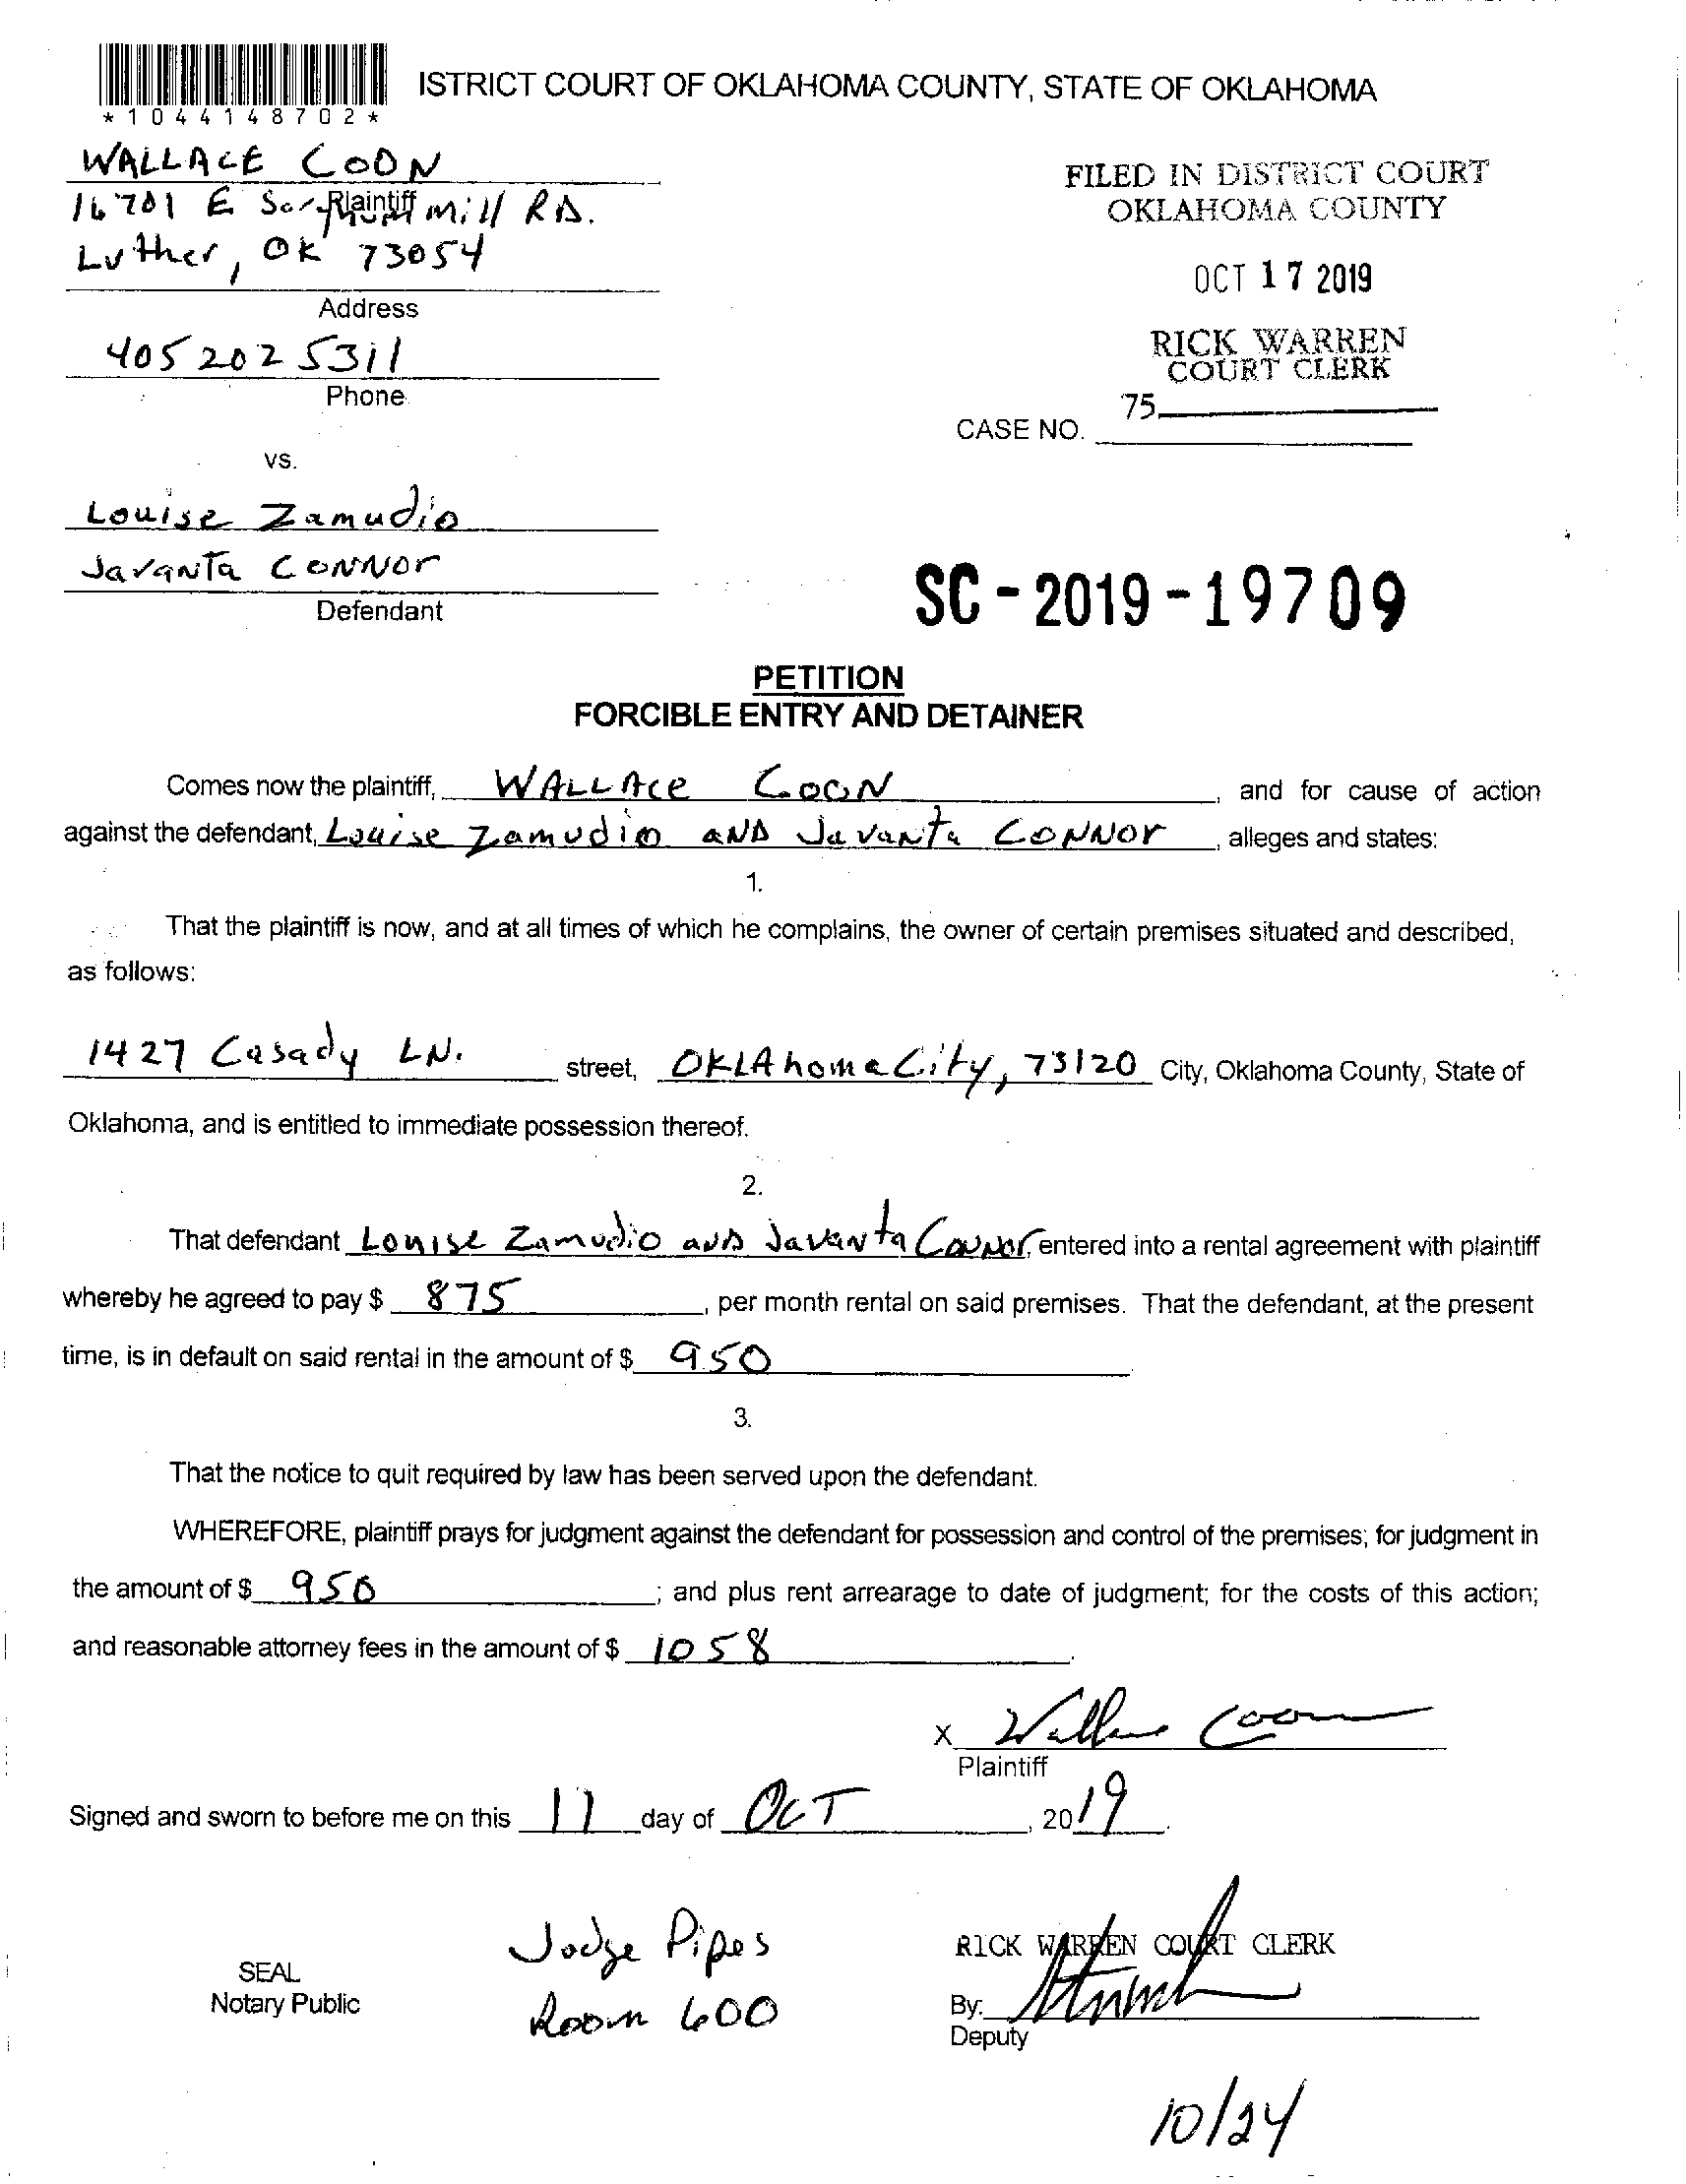 ISTRICT COURT OF OKLAHOMA COUNTY, STATE OF OKLAHOMA
*1044148702*
WALLACE COON
Plaintiff
16701 E Mill RD.
Luther, OK 73054
Address
405 202 5311
Phone
FILED IN DISTRICT COURT
OKLAHOMA COUNTY
OCT 17 2019
RICK WARREN
COURT CLERK
75
CASE NO.
vs.
Louise Zamudio
Javanta CONNOR
Defendant
SC-2019-19709
PETITION
FORCIBLE ENTRY AND DETAINER
Comes now the plaintiff, WALLAce COON, and for cause of action
against the defendant, Louise Zamudio aND Javanta CONNOR, alleges and states:
1.
That the plaintiff is now, and at all times of which he complains, the owner of certain premises situated and described,
as follows:
1427 Casady LN. street, OKLAhoma City, 73120 City, Oklahoma County, State of
Oklahoma, and is entitled to immediate possession thereof.
2.
That defendant Louise Zamudio aND Javanta Connor, entered into a rental agreement with plaintiff
whereby he agreed to pay $ 875, per month rental on said premises. That the defendant, at the present
time, is in default on said rental in the amount of $ 950
3.
That the notice to quit required by law has been served upon the defendant.
WHEREFORE, plaintiff prays for judgment against the defendant for possession and control of the premises; for judgment in
the amount of $ 950; and plus rent arrearage to date of judgment; for the costs of this action;
and reasonable attorney fees in the amount of $ 1058.
X Wallace Coon
Plaintiff
Signed and sworn to before me on this 17 day of OCT, 2019.
SEAL
Notary Public
Judge Pipes
Room 600
RICK WARREN COURT CLERK
By:
Deputy
10/24